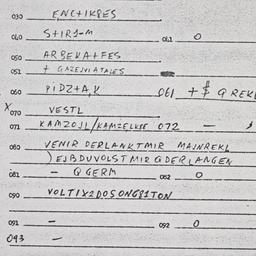 030 ENC+IKBES
040 S+IRJ-M 041 0
050 ARBEKA+FES
051 + GAZEJVIATALES
060 PIDZ+A,K 061 + $ Q REKL
X 070 VESTL
071 KAMZOJL/KAMZELKSE 072 -
080 VENIR DERLANKTMIR MAJNREKL
) EJBDUVOLST MIR Q DERLANGEN
081 - Q GERM 082 0
090 VOLTIX2DOSONG81TON
091 - 092 0
093 -